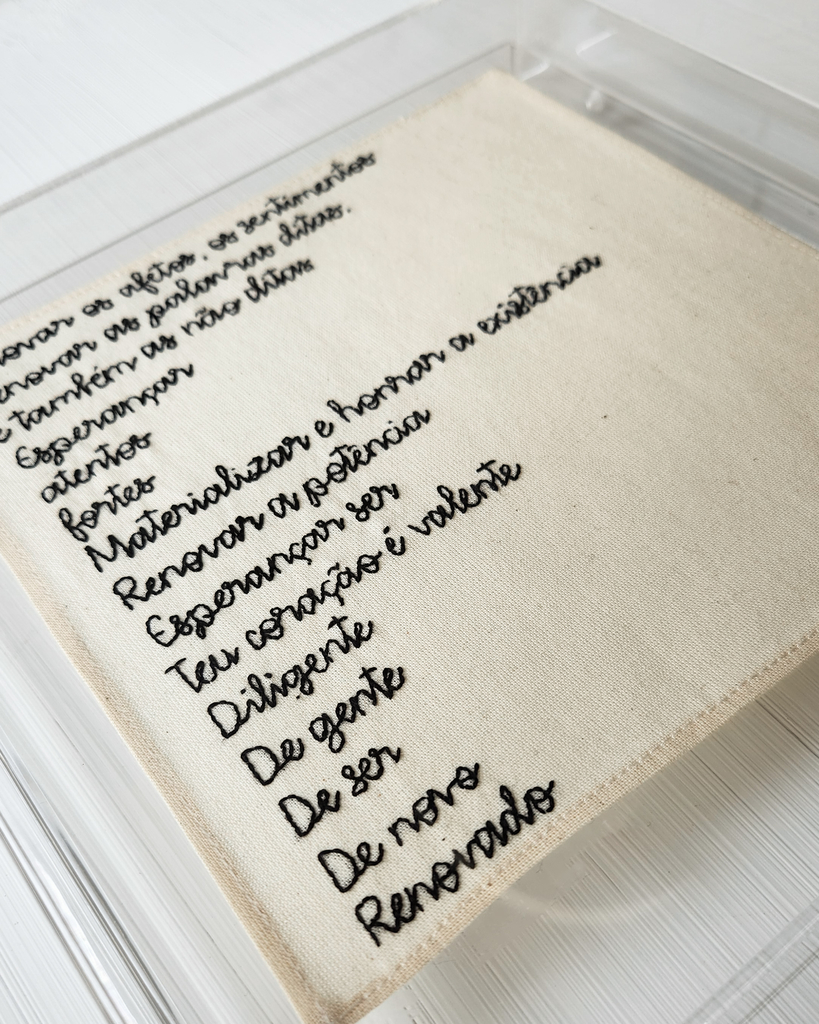 os afetos, os sentimentos
as palavras ditas.
e também as não ditas
Esperançar
atentos
fortes
Materializar e honrar a existência
Renovar a potência
Esperançar ser
Teu coração é valente
Diligente
De gente
De ser
De novo
Renovado